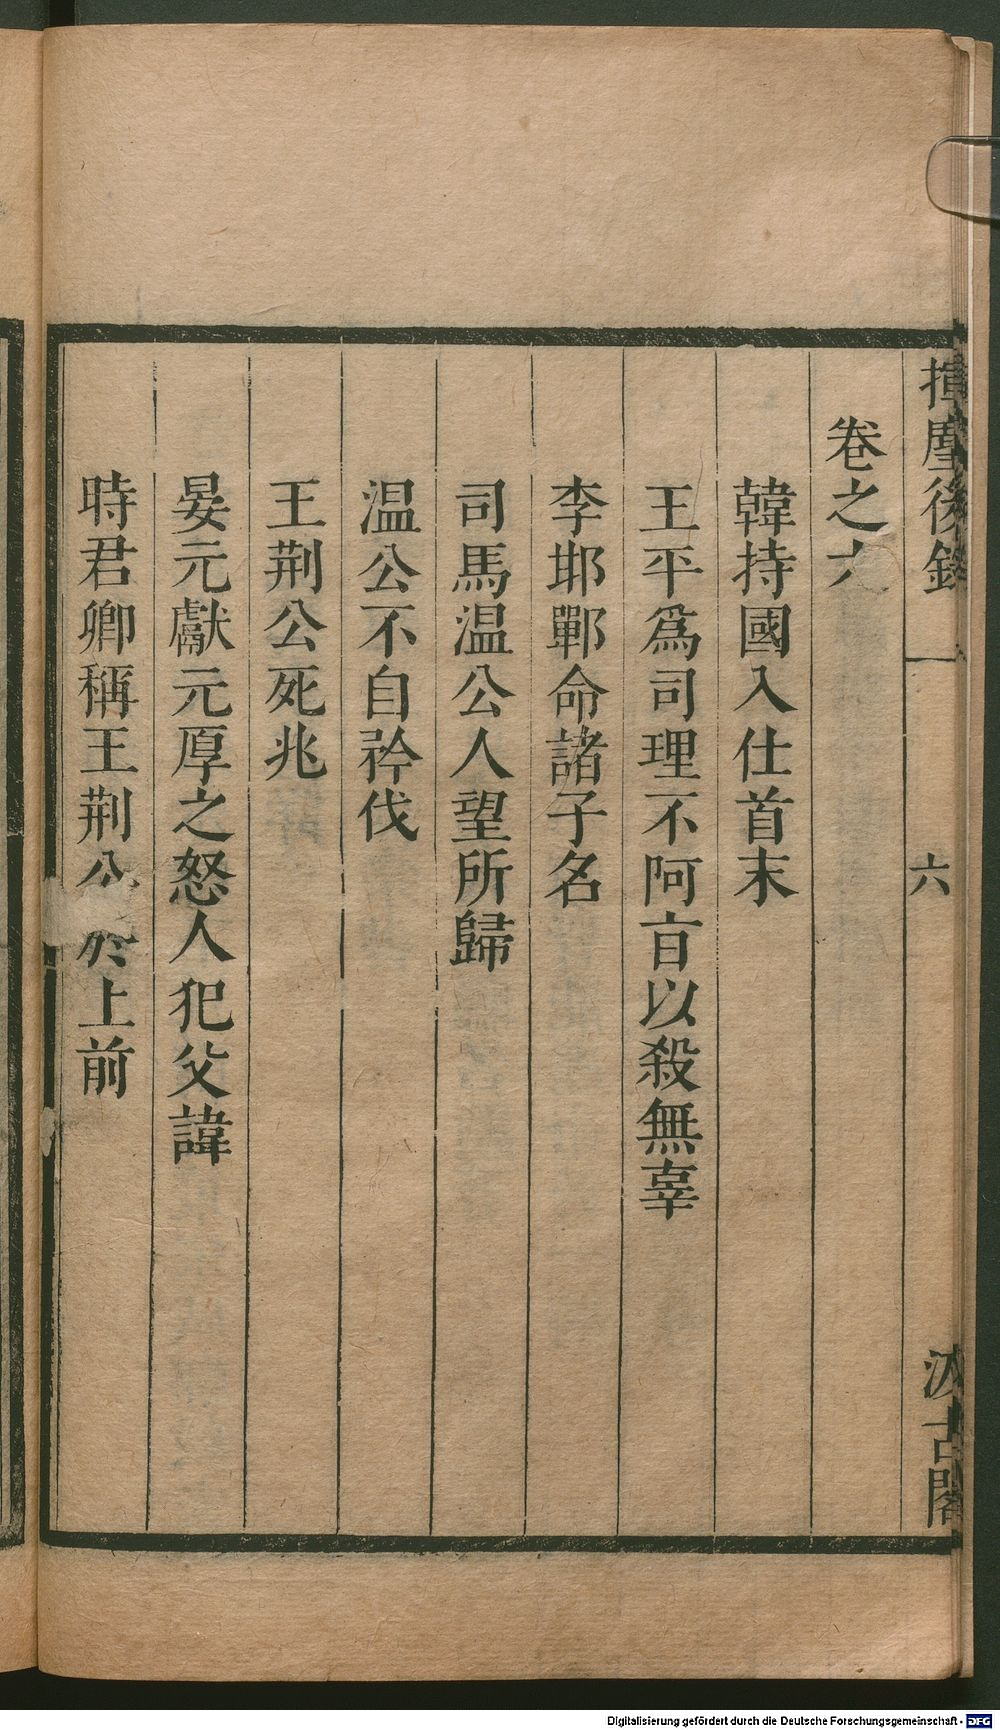 揮麈後錄 六 汲古閣
卷之六
韓持國入仕首末
王平爲司理不阿旨以殺無辜
李邯鄲命諸子名
司馬温公人望所歸
温公不自矜伐
王荆公死兆
晏元獻元厚之怒人犯父諱
時君卿稱王荆公於上前
Digitalisierung gefördert durch die Deutsche Forschungsgemeinschaft - DFG